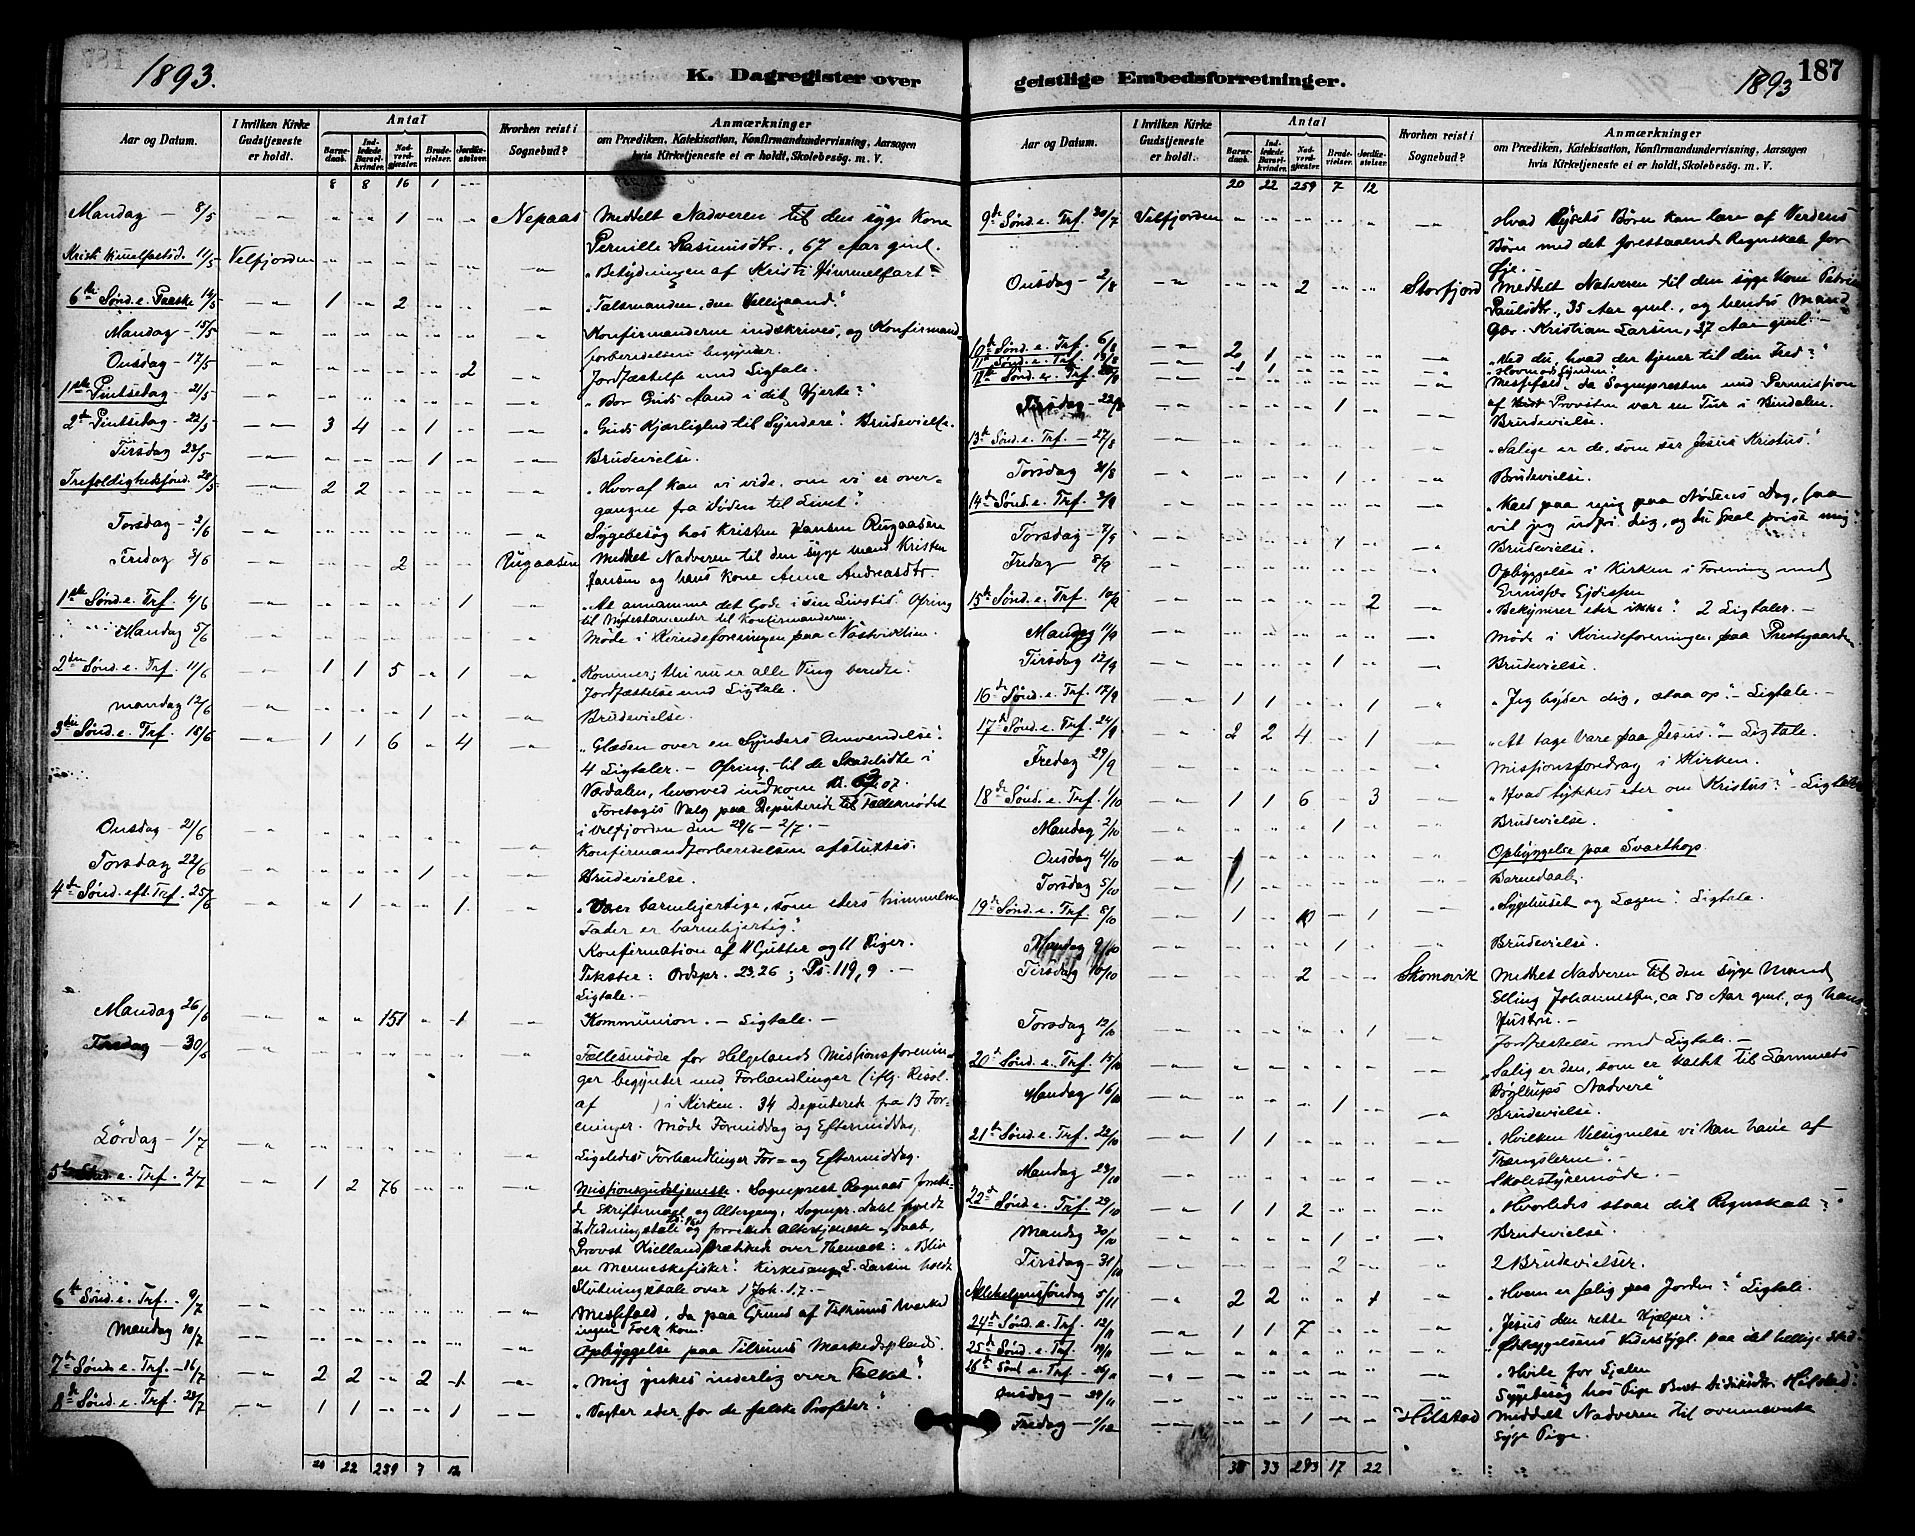 1893.
K. Dagregister over
Aar og Datum.
I hvilken Kirke Gudstjeneste er holdt.
Antal
Barnedaab.
Indledede Barselkvinder.
Nadverdgjester.
Brudevielser.
Jordfæstelser.
Hvorhen reist i Sognebud?
Anmærkninger
om Prædiken, Katekisation, Konfirmandundervisning, Aarsagen
hvis Kirketjeneste ei er holdt, Skolebesøg. m. V.
8 8 16 1 "
Mandag — 8/5 " " " 1 " " Nepaas Meddelt Nadveren til den syge Kone
Pernille Rasmusdtr., 67 Aar gml.
Kristi Himmelfartsd. 11/5 Velfjorden " " " " " " "Betydningen af Kristi Himmelfart"
6te Sønd. e. Paaske 14/5 " 1 " 2 " " " "Talsmanden, den Helligaand."
Mandag — 15/5 " " " " " " " Konfirmanderne indskrives, og Konfirmand
forberedelsen begynder.
Onsdag — 17/5 " " " " " 2 " Jordfæstelse med Ligtale.
1ste Pintsedag — 21/5 " " " " " " " "Bor Guds Aand i dit Hjerte?"
2den Pintsedag — 22/5 " 3 4 " 1 " " "Guds Kjærlighed til Syndere". Brudevielse.
Tirsdag — 23/5 " " " " 1 " " Brudevielse.
Trefoldighedssønd. 28/5 " 2 2 " " " " "Hvoraf kan vi vide, om vi er over-
gangne fra Døden til Livet?"
Torsdag — 2/6 " Sygebesøg hos Kristen Jansen Rugaasen
Fredag 3/6 " " " 2 " " Rugaasen Meddelt Nadveren til den syge Mand Kristen
Jansen og hans Kone Anne Andreasdtr.
1ste Sønd. e. Trf. 4/6 " " " " " 1 " "At annamme det Gode i sin Livstid" Ofring
til Nytestamenter til Konfirmanderne.
Mandag 5/6 " " " " " " " Møde i Kvindeforeningen paa
2den Sønd. e. Trf. 11/6 " 1 1 5 " 1 " "Kommer; thi nu er alle Ting beredte."
Jordfæstelse med Ligtale.
Mandag 12/6 " " " " 1 " " Brudevielse.
3die Sønd. e. Trf. 18/6 " 1 1 6 " 4 " "Glæden over en Synders Omvendelse".
4 Ligtaler. — Ofring til de Skadelidte i
Værdalen, hvorved indkom
Foretages Valg paa Deputerede til Fællesmødet
i Velfjorden den 29/6 — 2/7. —
Onsdag — 21/6 " " " " " " " Konfirmandforberedelsen afsluttes.
Torsdag 22/6 " " " " 1 " " Brudevielse.
4de Sønd. eft. Trf. 25/6 " " 1 " " 1 " "Vær barmhjertige, som eders himmelske
Fader er barmhjertig".
Konfirmation af 11 Gutter og 11 Piger.
Tekster: Ordspr. 23.26; Ps. 119, 9. —
Ligtale. —
Mandag 26/6 " " " 151 " 1 " Kommunion. — Ligtale. —
30/6 " " " " " " " Fællesmøde for Helgelands Missionsforenin-
ger begynder med Forhandlinger (iflg. Resol.
af ) i Kirken. 34 Deputerede fra 13 For-
eninger. Møde Formiddag og Eftermiddag
Lørdag — 1/7 " " " " " " Ligeledes Forhandlinger For= og Eftermiddag.
5te Sønd. e. Trf. 2/7 " 1 2 76 " " " Missionsgudstjeneste. Sogneprest
de Skriftemaal og Altergang, Sognepr.
Indledningstale og forrettede Altertjeneste
Provst Kielland prædikede over Themaet: "Bliv
en Menneskefisker". Kirkesanger L. Larsen holdt
Slutningstale over 1 Joh. 1.7. —
6te Sønd. e. Trf. 9/7 " " " " " " " Messefald, da paa Grund af Tilrums Marked
ingen Folk kom.
Mandag 10/7 " " " " " " " Opbyggelse paa Tilrums Markedsplads.
7de Sønd. e. Trf. — 16/7 " 2 2 " 2 1 " "Mig ynkes inderlig over Folket".
8de Sønd. e. Trf. 23/7 " 1 1 " " 1 " "Vogter eder for de falske Profeter".
20 22 259 7 12
geistlige Embedsforretninger.
1893
187
Aar og Datum.
I hvilken Kirke Gudstjeneste er holdt.
Antal
Barnedaab.
Indledede Barselkvinder.
Nadverdgjester.
Brudevielser.
Jordfæstelser.
Hvorhen reist i Sognebud?
Anmærkninger
om Prædiken, Katekisation, Konfirmandundervisning, Aarsagen
hvis Kirketjeneste ei er holdt, Skolebesøg m. V.
20 22 259 7 12
9de Sønd. e. Trf. 30/7 Velfjorden " " " " " " "Hvad Lysets Børn kan lære af Verdens
Børn med det forestaaende Regnskab for
Øje.
Onsdag — 2/8 " " " 2 " " Storfjord Meddelt Nadveren til den syge Kone
Paulsdtr., 35 Aar gml., og hendes Mand
Gbr. Kristian Larsen, 37 Aar gml. —
10de Sønd. e. Trf. 6/8 " 2 1 " " " " "Ved du, hvad der tjener til din Fred?"
11te Sønd. e. Trf. " 1 1 " " " " "Hovmodssynden".
12te Sønd. e. Trf. " " " " " " " Messefald, da Sognepresten med Permission
af Provsten var en Tur i Bindalen.
Tirsdag — 22/8 " " " " 1 " " Brudevielse.
13de Sønd. e. Trf. — 27/8 " " " " " " " "Salige er de, som ser Jesus Kristus."
Torsdag 31/8 " " " " 1 " " Brudevielse.
14de Sønd. e. Trf. 3/9 " " " " " " " "Kald paa mig paa Nødens Dag, saa
vil jeg udfri dig, og du skal prise mig".
Torsdag — 7/9 " " " " 1 " " Brudevielse.
Fredag 8/9 " " " " " " " Opbyggelse i Kirken i Forening med
15de Sønd. e. Trf. 10/9 " " " " " 2 " "Bekymrer eder ikke". 2 Ligtaler. —
Mandag 11/9 " " " " " " " Møde i Kvindeforeningen paa Prestegaarden
Tirsdag 12/9 " " " " 1 " " Brudevielse.
16de Sønd. e. Trf. 17/9 " 1 1 " " 1 " "Jeg byder dig, staa op". — Ligtale. —
17de Sønd. e. Trf. 24/9 " 2 2 4 " 1 " "At tage Vare paa Jesus". — Ligtale.
Fredag 29/9 " " " " " " " Missionsforedrag i Kirken.
18de Sønd. e. Trf. 1/10 " 1 1 6 " 3 " "Hvad tykkes eder om Kristus?" — Ligtale
Mandag 2/10 " " " " 1 " " Brudevielse.
Onsdag 4/10 " " " " " " " Opbyggelse paa Svarthop.
Torsdag 5/10 " 1 " " " " " Barnedaab.
19de Sønd. e. Trf. 8/10 " 1 " " 1 " "Sygehuset og Lægen". Ligtale.
Mandag 9/10 " " " " 1 " " Brudevielse.
Tirsdag 10/10 " " " 2 " " Skomovik Meddelt Nadveren til den syge Mand
Elling Johannessen, ca 50 Aar gml., og hans
Hustru. —
Torsdag 12/10 " " " " " 1 " Jordfæstelse med Ligtale. —
20de Sønd. e. Trf. 15/10 " " " " " " " "Salig er den, som er kaldt til Lammets
Bryllups Nadvere"
Mandag 16/10 " " " " 1 " " Brudevielse.
21de Sønd. e. Trf. 22/10 " 1 1 " " " " "Hvilken Velsignelse vi kan have af
Trængslerne". —
Mandag 23/10 " " " " " " " Skolestyremøde. —
22de Sønd. e. Trf. 29/10 " 1 1 2 " " " "Hvorledes staar dit Regnskab?"
Mandag 30/10 " " " " 1 " " Brudevielse.
Tirsdag — 31/10 " " " " 2 " " 2 Brudevielser.
Allehelgenssøndag 5/11 " 2 2 " " 1 " "Hvem er salig paa Jorden?" Ligtale.
24de Sønd. e. Trf. 12/11 " 1 1 7 " " " "Jesus den rette Hjælper".
25de Sønd. e. Trf. 19/11 " " " " " " " "Ødelæggelsens Vederstygl. paa det hellige Sted
26de Sønd. e. Trf. — 26/11 " " " " " " " "Hvile for Sjælen
Onsdag — 29/11 " " " " " " " Sygebesøg hos Pige Hilstad.
Fredag — 1/12 " " " 1 " " Hilstad Meddelt Nadveren til ovennævnte
syge Pige.
35 33 293 17 22